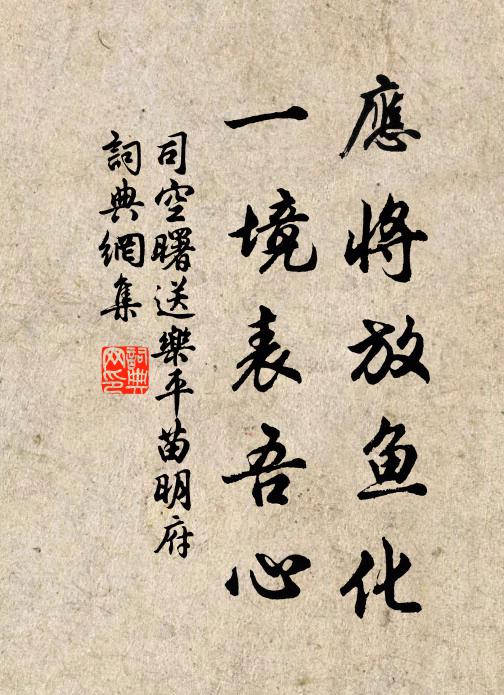 應將放鱼化
一境表吾心
司空曙送樂平苗明府
詞典網集
詞典
网印